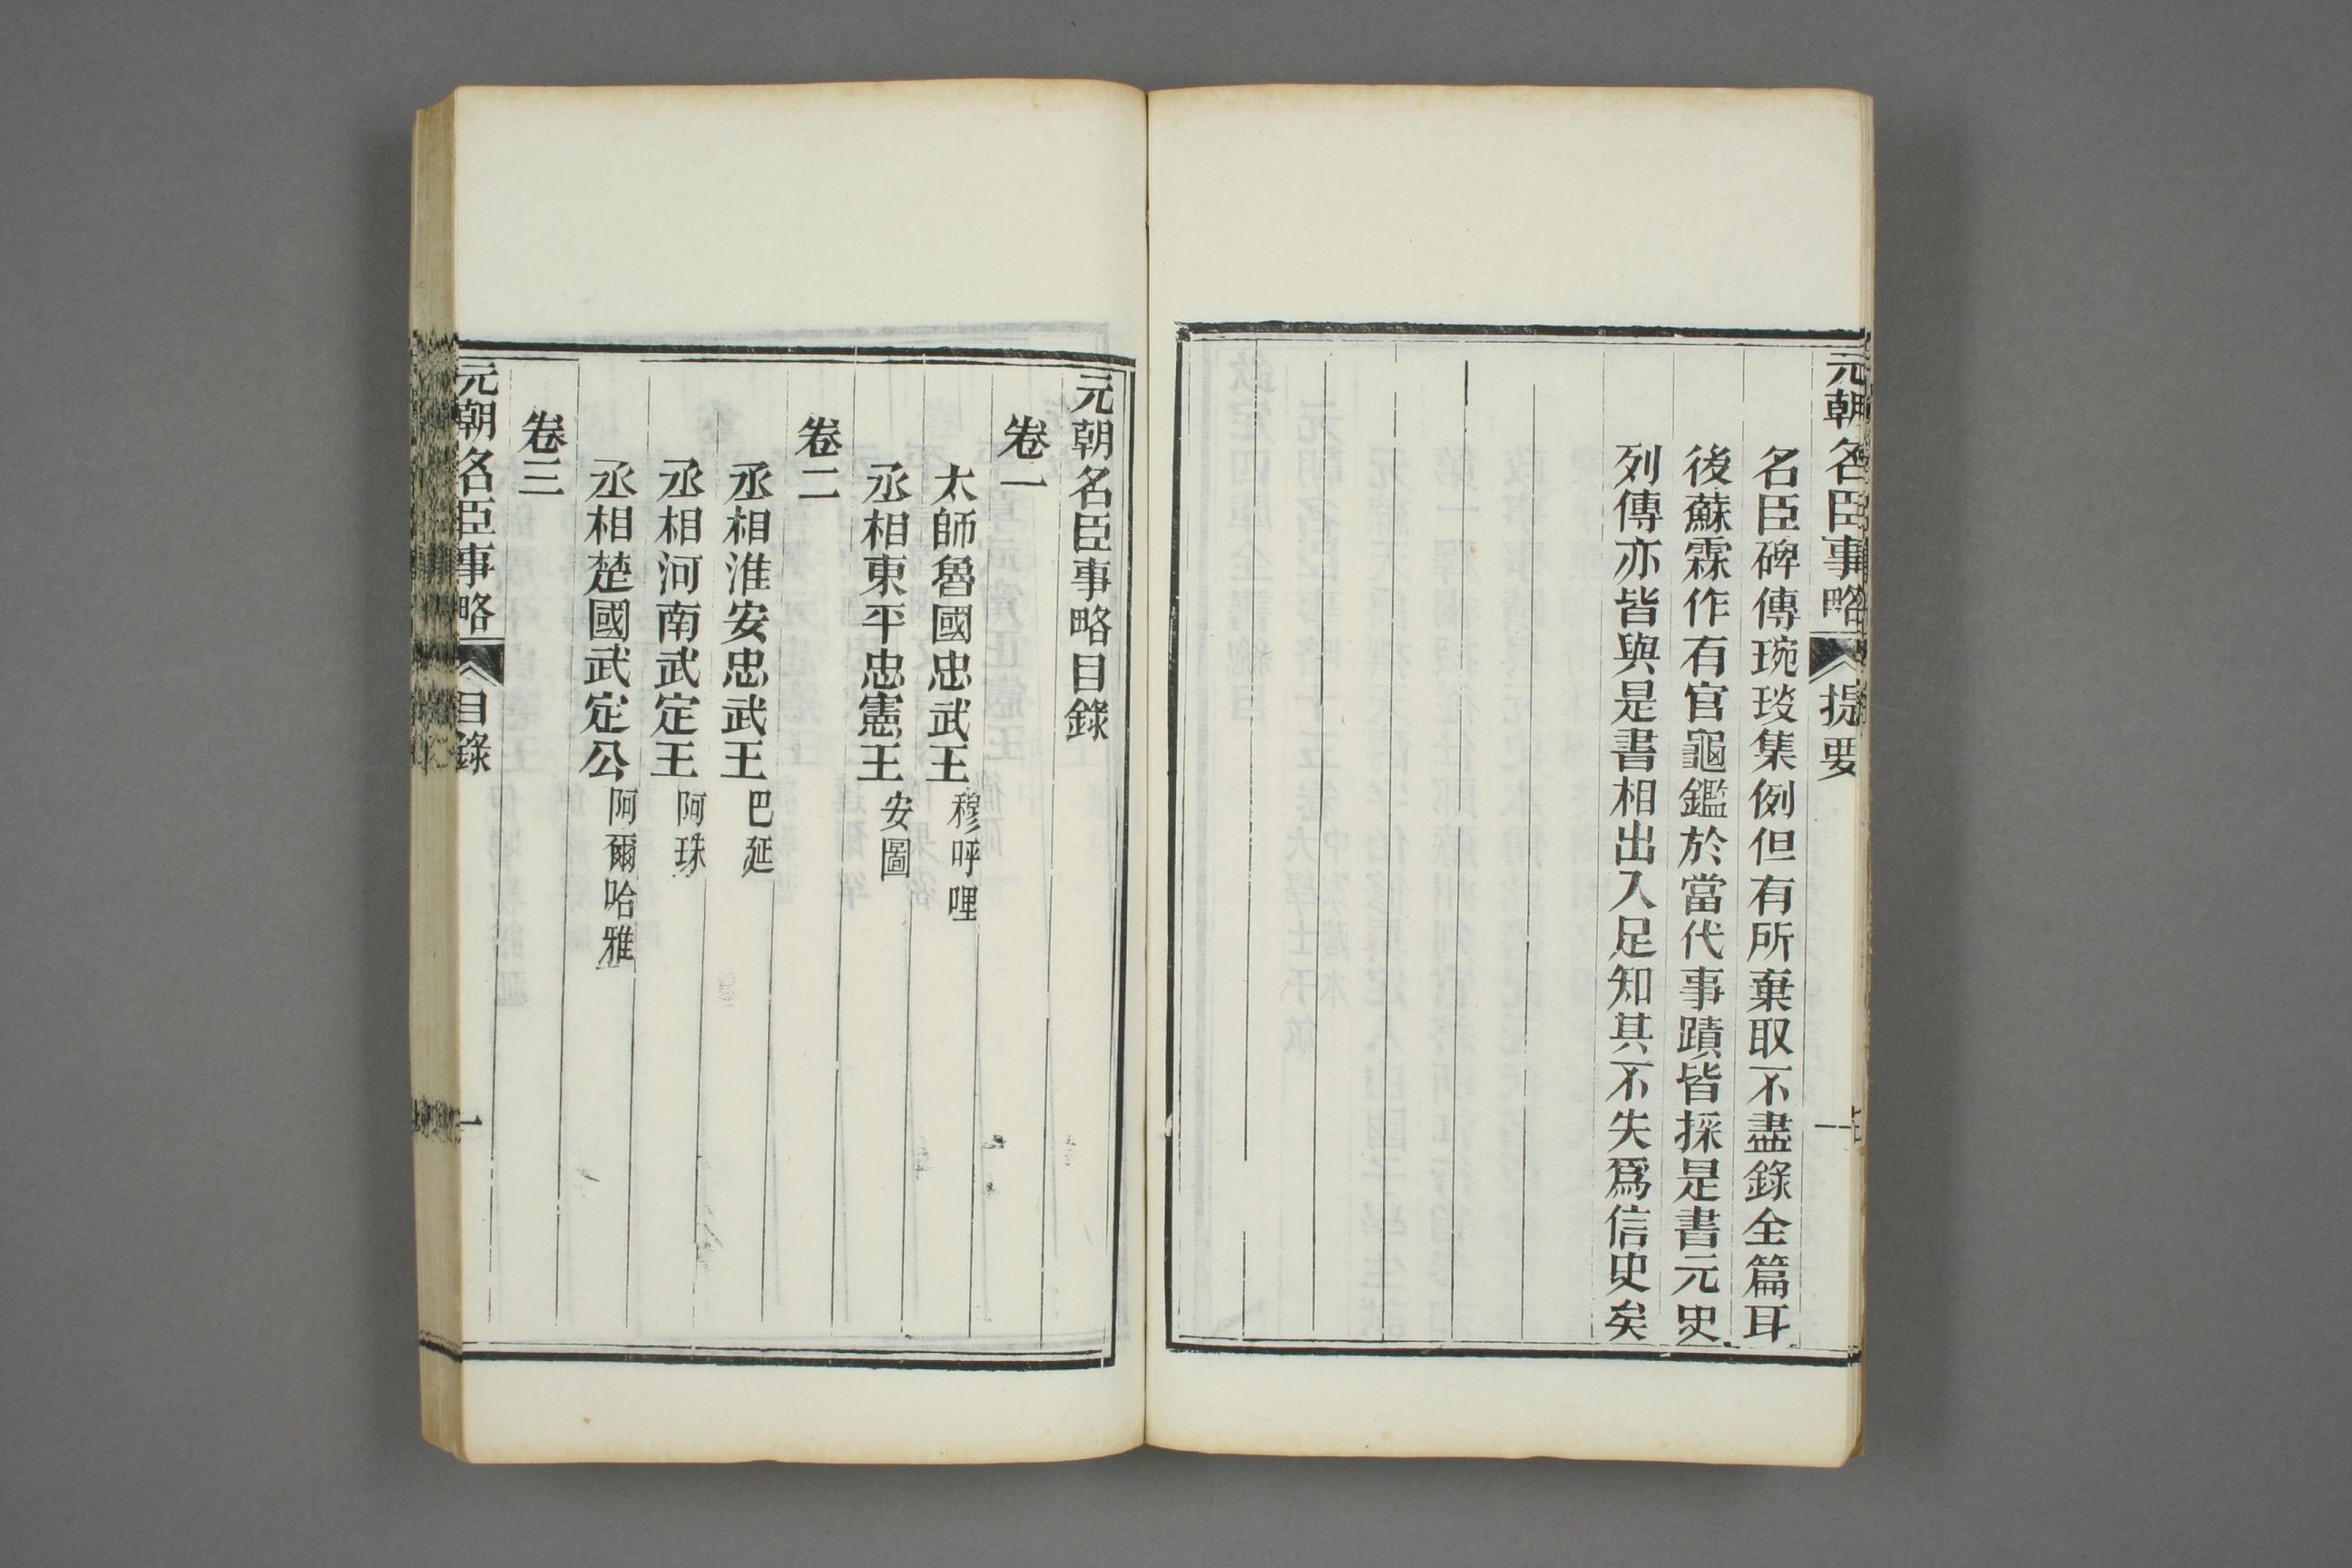 元朝名臣事略 提要 一
名臣碑傳琬琰集例但有所棄取不盡錄全篇耳
後蘇霖作有官龜鑑於當代事蹟皆採是書元史
列傳亦皆與是書相出入足知其不失爲信史矣
元朝名臣事略目錄
卷一
太師魯國忠武王 穆呼哩
丞相東平忠憲王 安圖
卷二
丞相淮安忠武王 巴延
丞相河南武定王 阿珠
丞相楚國武定公 阿爾哈雅
卷三
元朝名臣事略 目錄 一